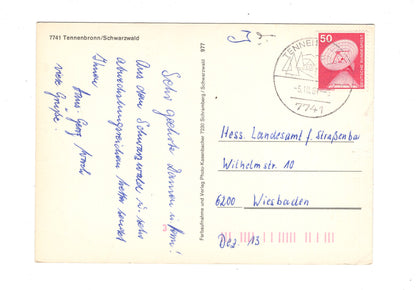 7741 Tennenbronn/Schwarzwald
Sehr geehrte Damen u. Herrn!
Aus dem Schwarzwald in sehr
abwechslungsreichen Wetter sendet
Ihnen
Hans-Georg
viele Grüße.
977
Farbaufnahme und Verlag Photo-Kasenbacher 7230 Schramberg/Schwarzwald
50
DEUTSCHE BUNDESPOST
7741
Hess. Landesamt f. Straßenbau
Wilhelmstr. 10
6200 Wiesbaden
Dez. 13